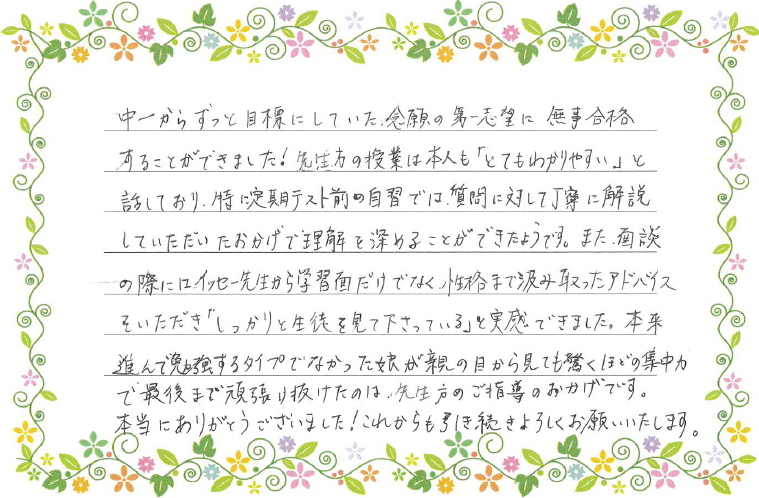 中一からずっと目標にしていた、念願の第一志望に無事合格
することができました！先生方の授業は本人も「とてもわかりやすい」と
話しており、特に定期テスト前の自習では、質問に対して丁寧に解説
していただいたおかげで理解を深めることができたようです。また、面談
の際にはイッセー先生から学習面だけでなく、性格まで汲み取ったアドバイス
をいただき「しっかりと生徒を見て下さっている」と実感できました。本来
進んで勉強するタイプでなかった娘が親の目から見ても驚くほどの集中力
で最後まで頑張り抜けたのは、先生方のご指導のおかげです。
本当にありがとうございました！これからも引き続きよろしくお願いいたします。